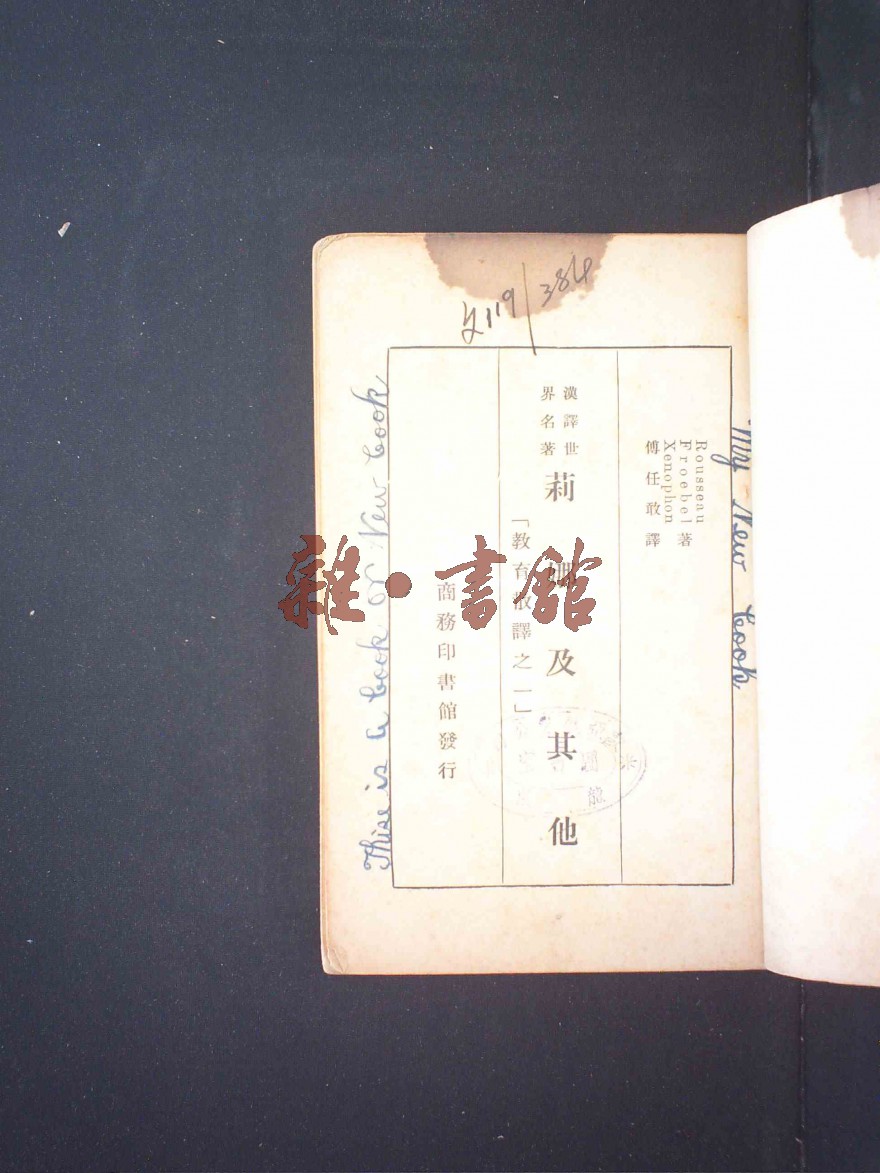 My New book
Rousseau
Froebel 著
Xenophon
傅任敢 譯
漢譯世
界名著
莉娜及其他
「教育散譯之一」
商務印書館發行
Thise is a book of New book
119/384
雜·書館